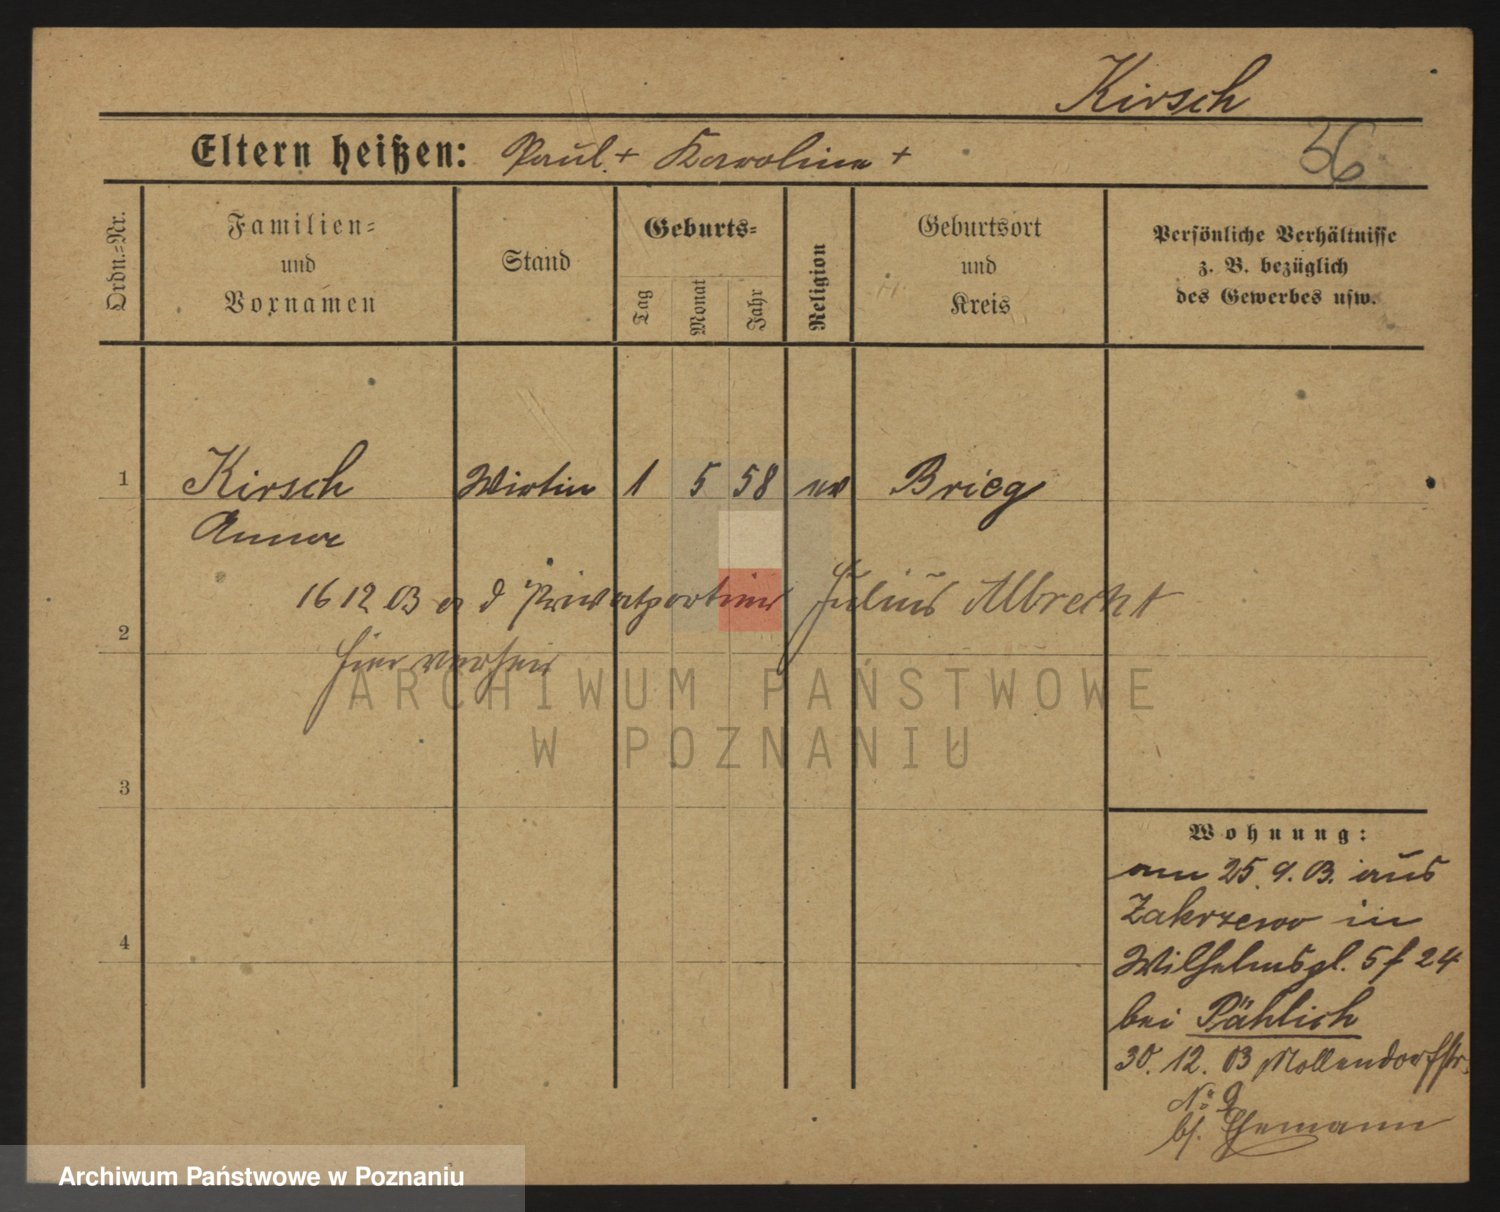 Kirsch
Eltern heißen: Paul + Karoline +
36
Ordn.=Nr.
Familien=
und
Vornamen
Stand
Geburts=
Tag
Monat
Jahr
Religion
Geburtsort
und
Kreis
Persönliche Verhältnisse
z. B. bezüglich
des Gewerbes usw.
1 Kirsch Wirtin 1 5 58 ev Brieg
Anna
16 12 03 d Privatportier Julius Albrecht
2
hier verheir
ARCHIWUM PAŃSTWOWE
W POZNANIU
3
Wohnung:
am 25. 9. 03. aus
Zakrzewo in
4
Wilhelmspl. 5 f 24
bei Pählich
30. 12. 03 Mollendorfstr.
No 9
b/. Ehemann
Archiwum Państwowe w Poznaniu